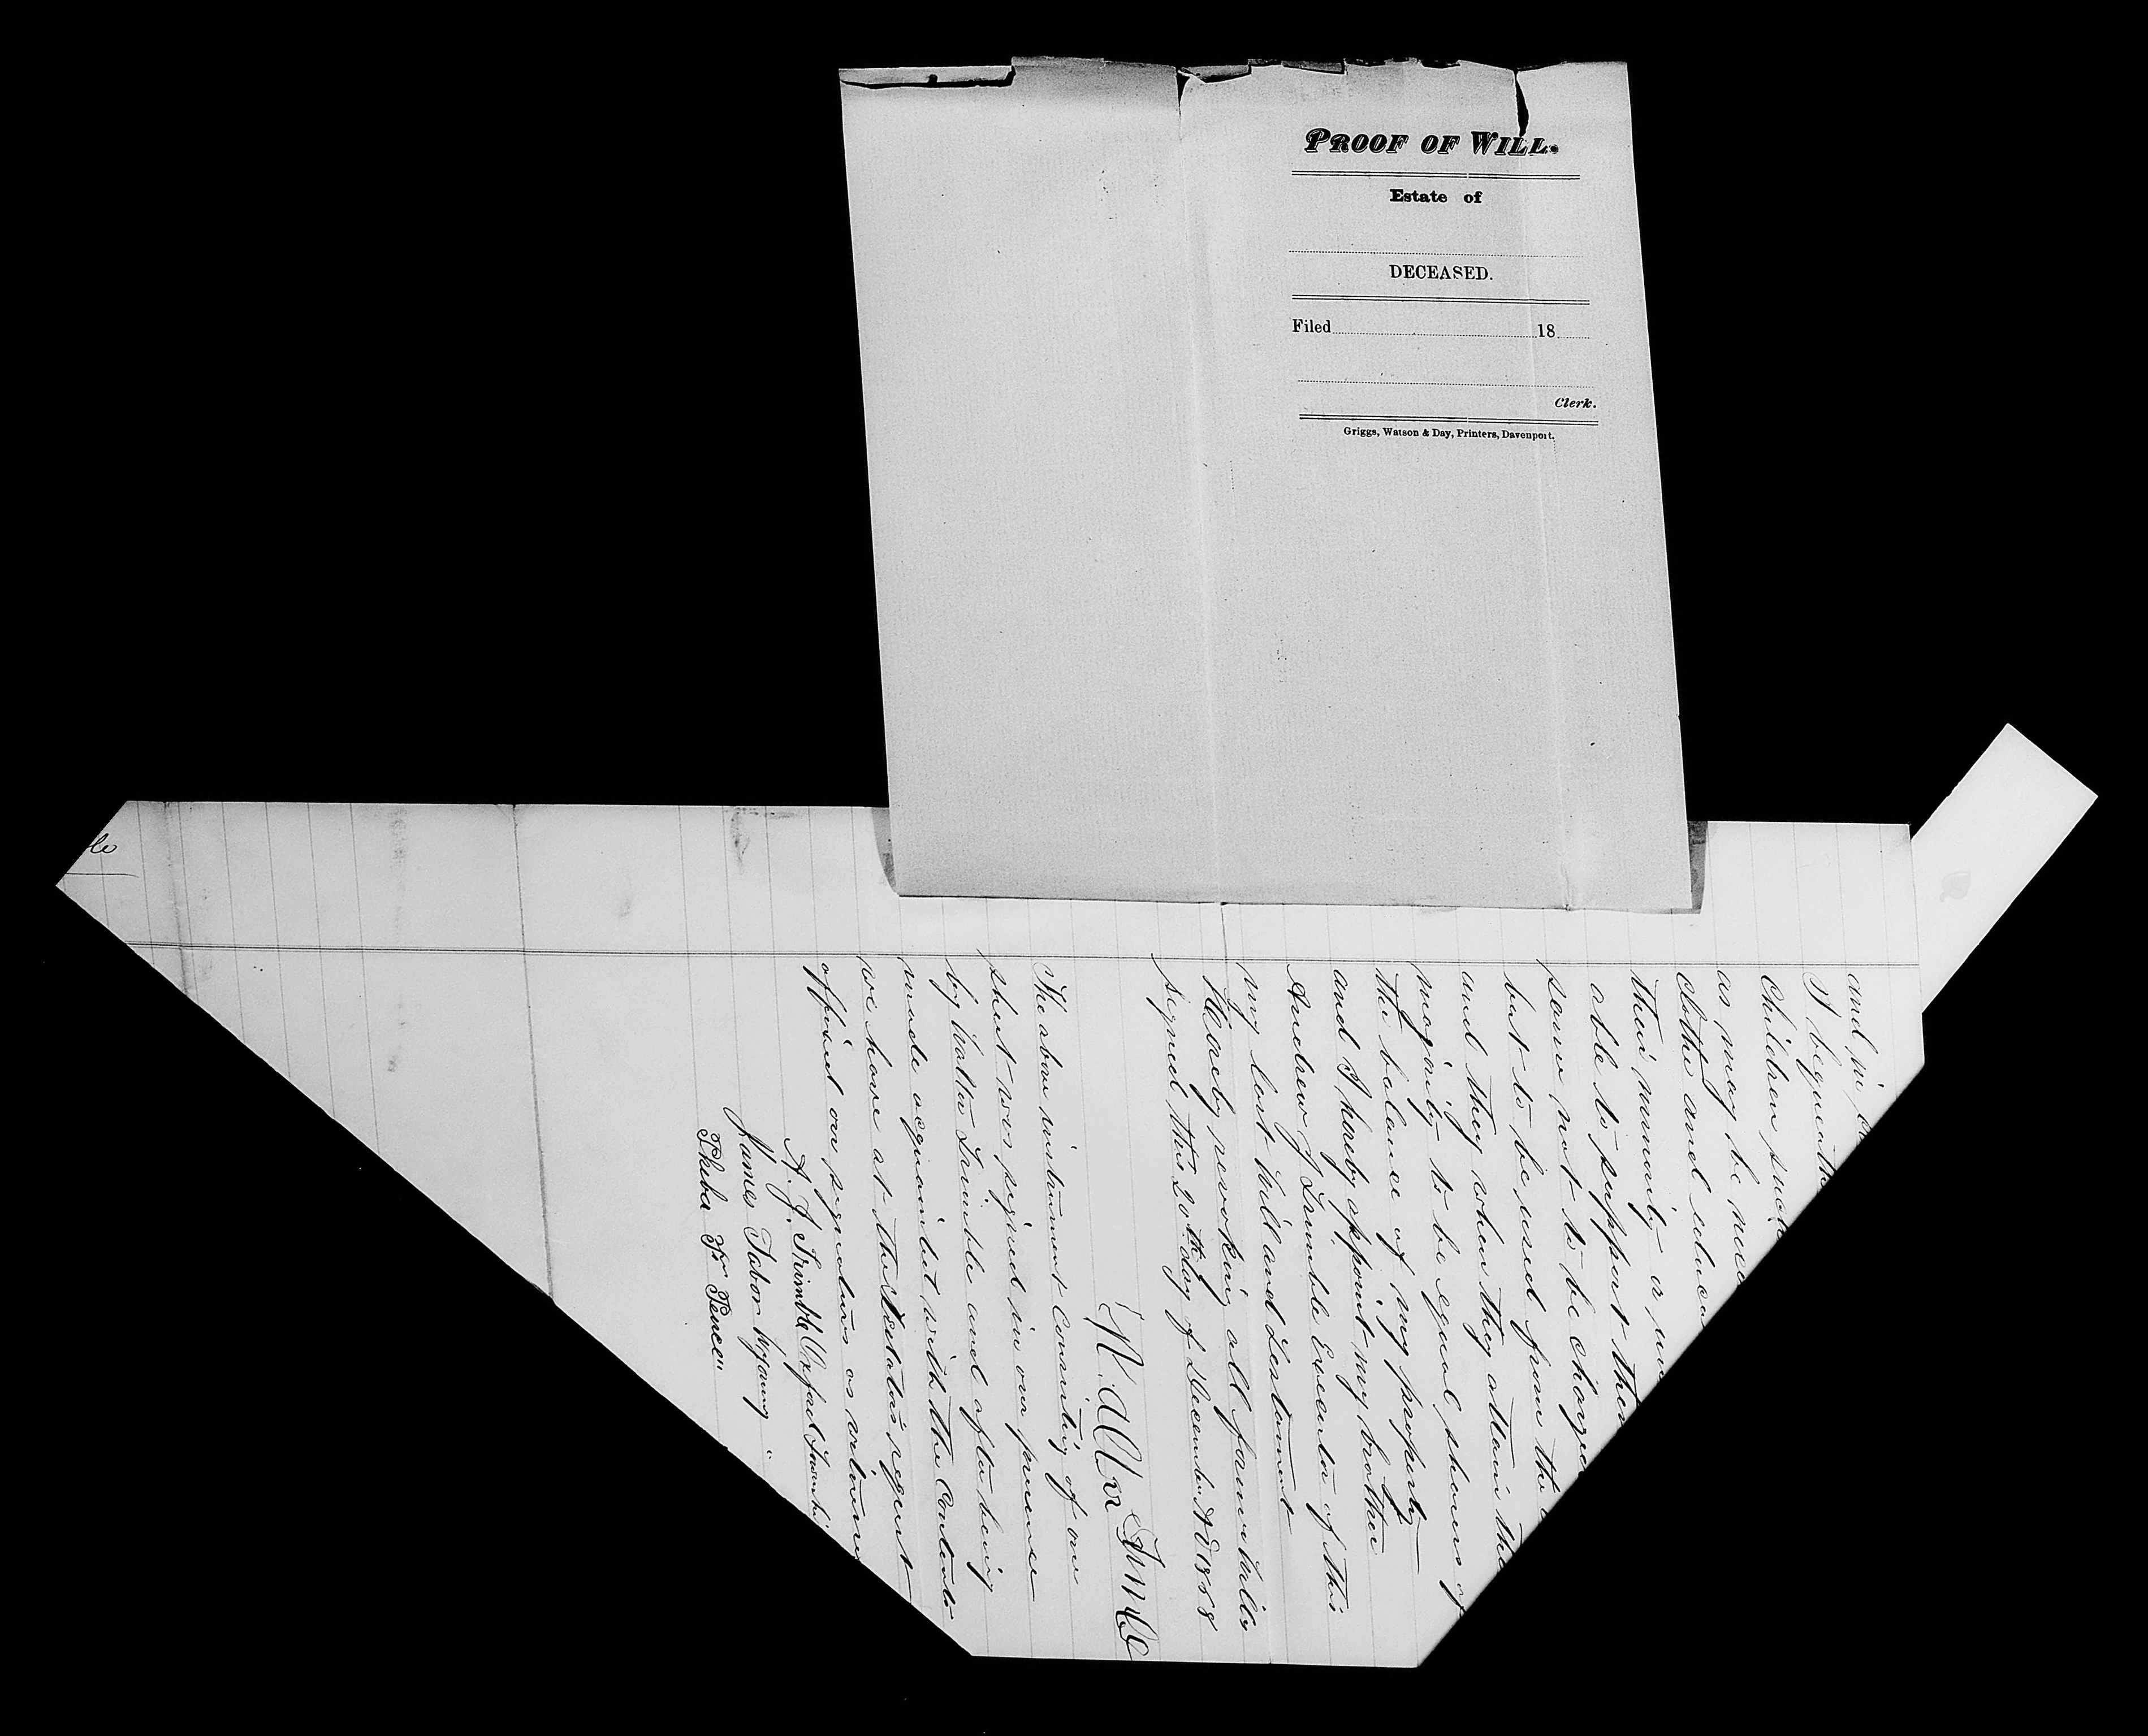 PROOF OF WILL.
Estate of
DECEASED.
Filed 18
Clerk.
Griggs, Watson & Day, Printers, Davenport.
and
I bequeathe
Children such
as may be
Clothe and
their minority or
able to support them
same not to be charged
but to be used from the
and they when they attain the
majority to be equal sharers of
the balance of my property
and I hereby appoint my brother
Andrew J Trimble Executor of this
my last Will and Testament
Hereby revoking all former Wills
signed this 20th day of December A D 1888
Walter Trimble
The above instrument Consisting of one
sheet was signed in our presence
by Walter Trimble and after being
made acquainted with the Contents
we have at the Testators request
affixed our signatures as witnesses
A. J. Trimble Oxford
James Tabor Wyoming "
Pheba F Pence "